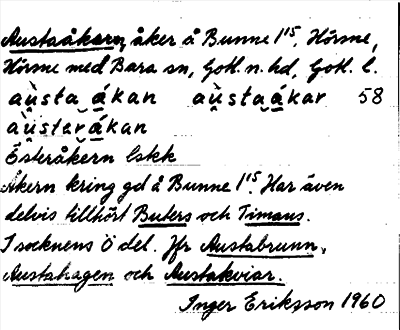 Austaåkern, åker å Bunne 1¹⁵, Hörsne,
Hörsne med Bara sn, Gotl. n. hd, Gotl. l.
aùsta ákan aùstaákar 58
aùstarákan
Österåkern lskk
Åkern kring gd å Bunne 1¹⁵. Har även
delvis tillhört Buters och Timans.
I socknens Ö del. Jfr Austabrunn,
Austahagen och Austakviar.
Inger Eriksson 1960